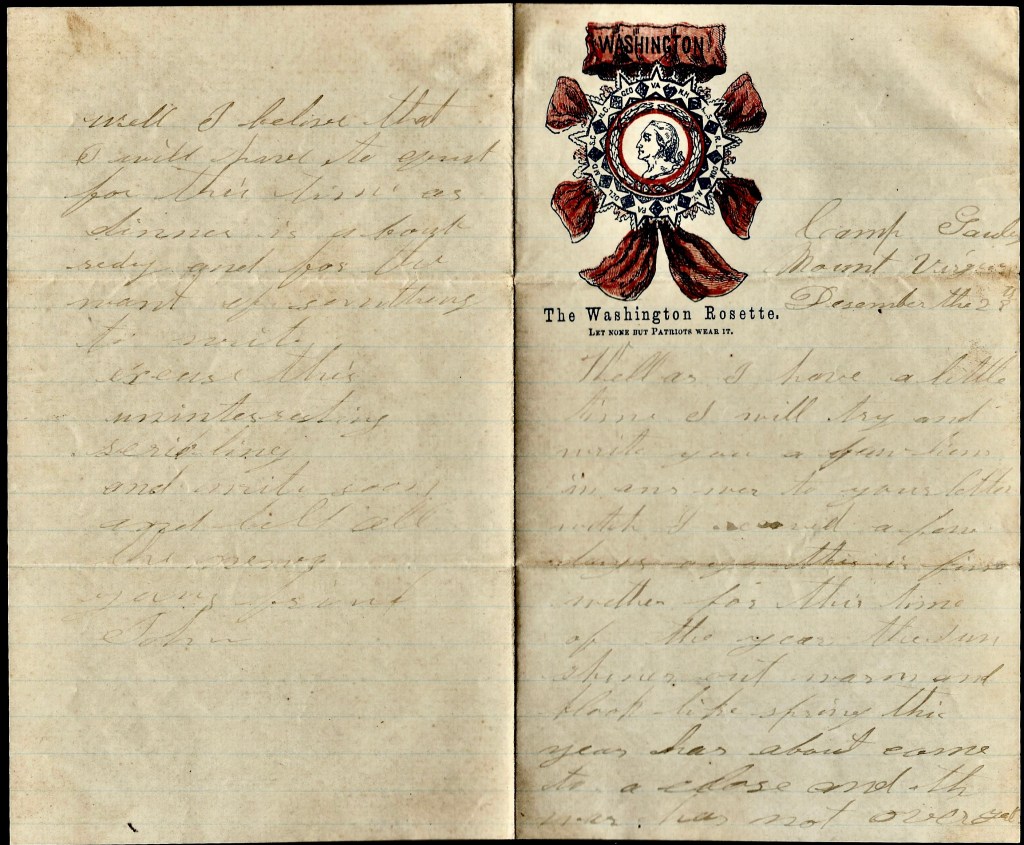 well I beleve that
I will have to quit
for this time as
dinner is about
redy and for the
want of somthing
to write
excuse this
uninteresting
scribling
and write soon
and tell all
the news
yours friend
John
WASHINGTON
GEO VA N.H. R.I. CON N.Y. N.J. PA DEL MD S.C. N.C.
The Washington Rosette.
LET NONE BUT PATRIOTS WEAR IT.
Camp
Mount Vernon
Desember the 28
Well as I have a little
time I will try and
write you a few lines
in answer to your letter
witch I receved a few
days ago this is fine
wether for this time
of the year the sun
shines out warm and
look like spring this
year has about come
to a close and th
war has not over yet